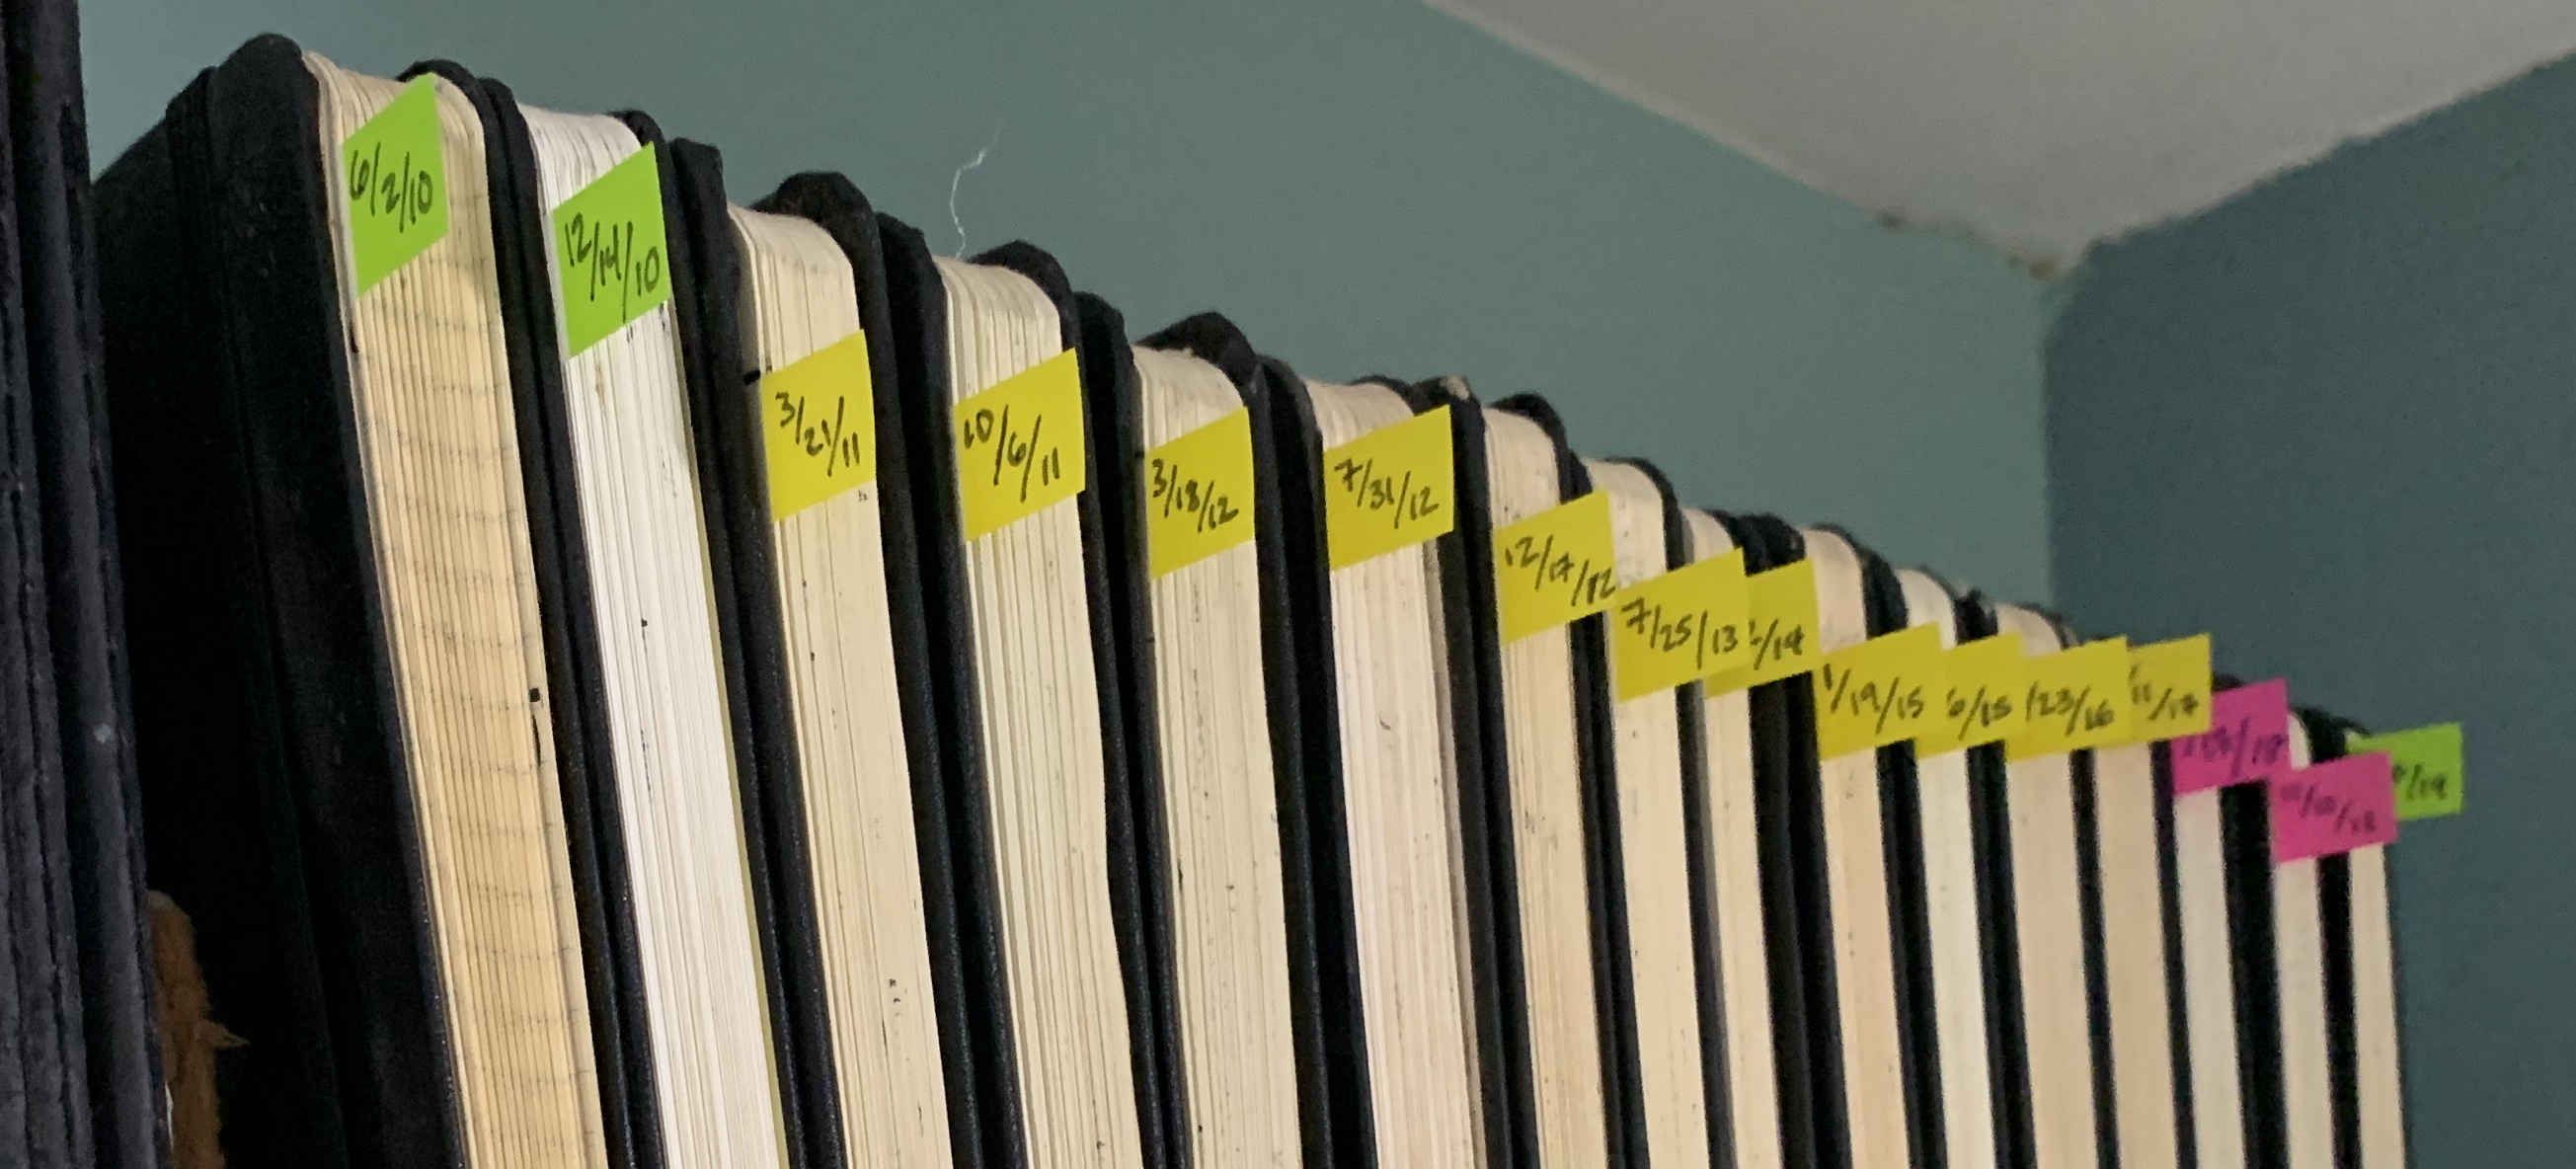 6/2/10
12/14/10
3/21/11
10/6/11
3/18/12
7/31/12
12/17/12
7/25/13
/14
1/19/15
6/15
/23/16
11/17
/18
/19